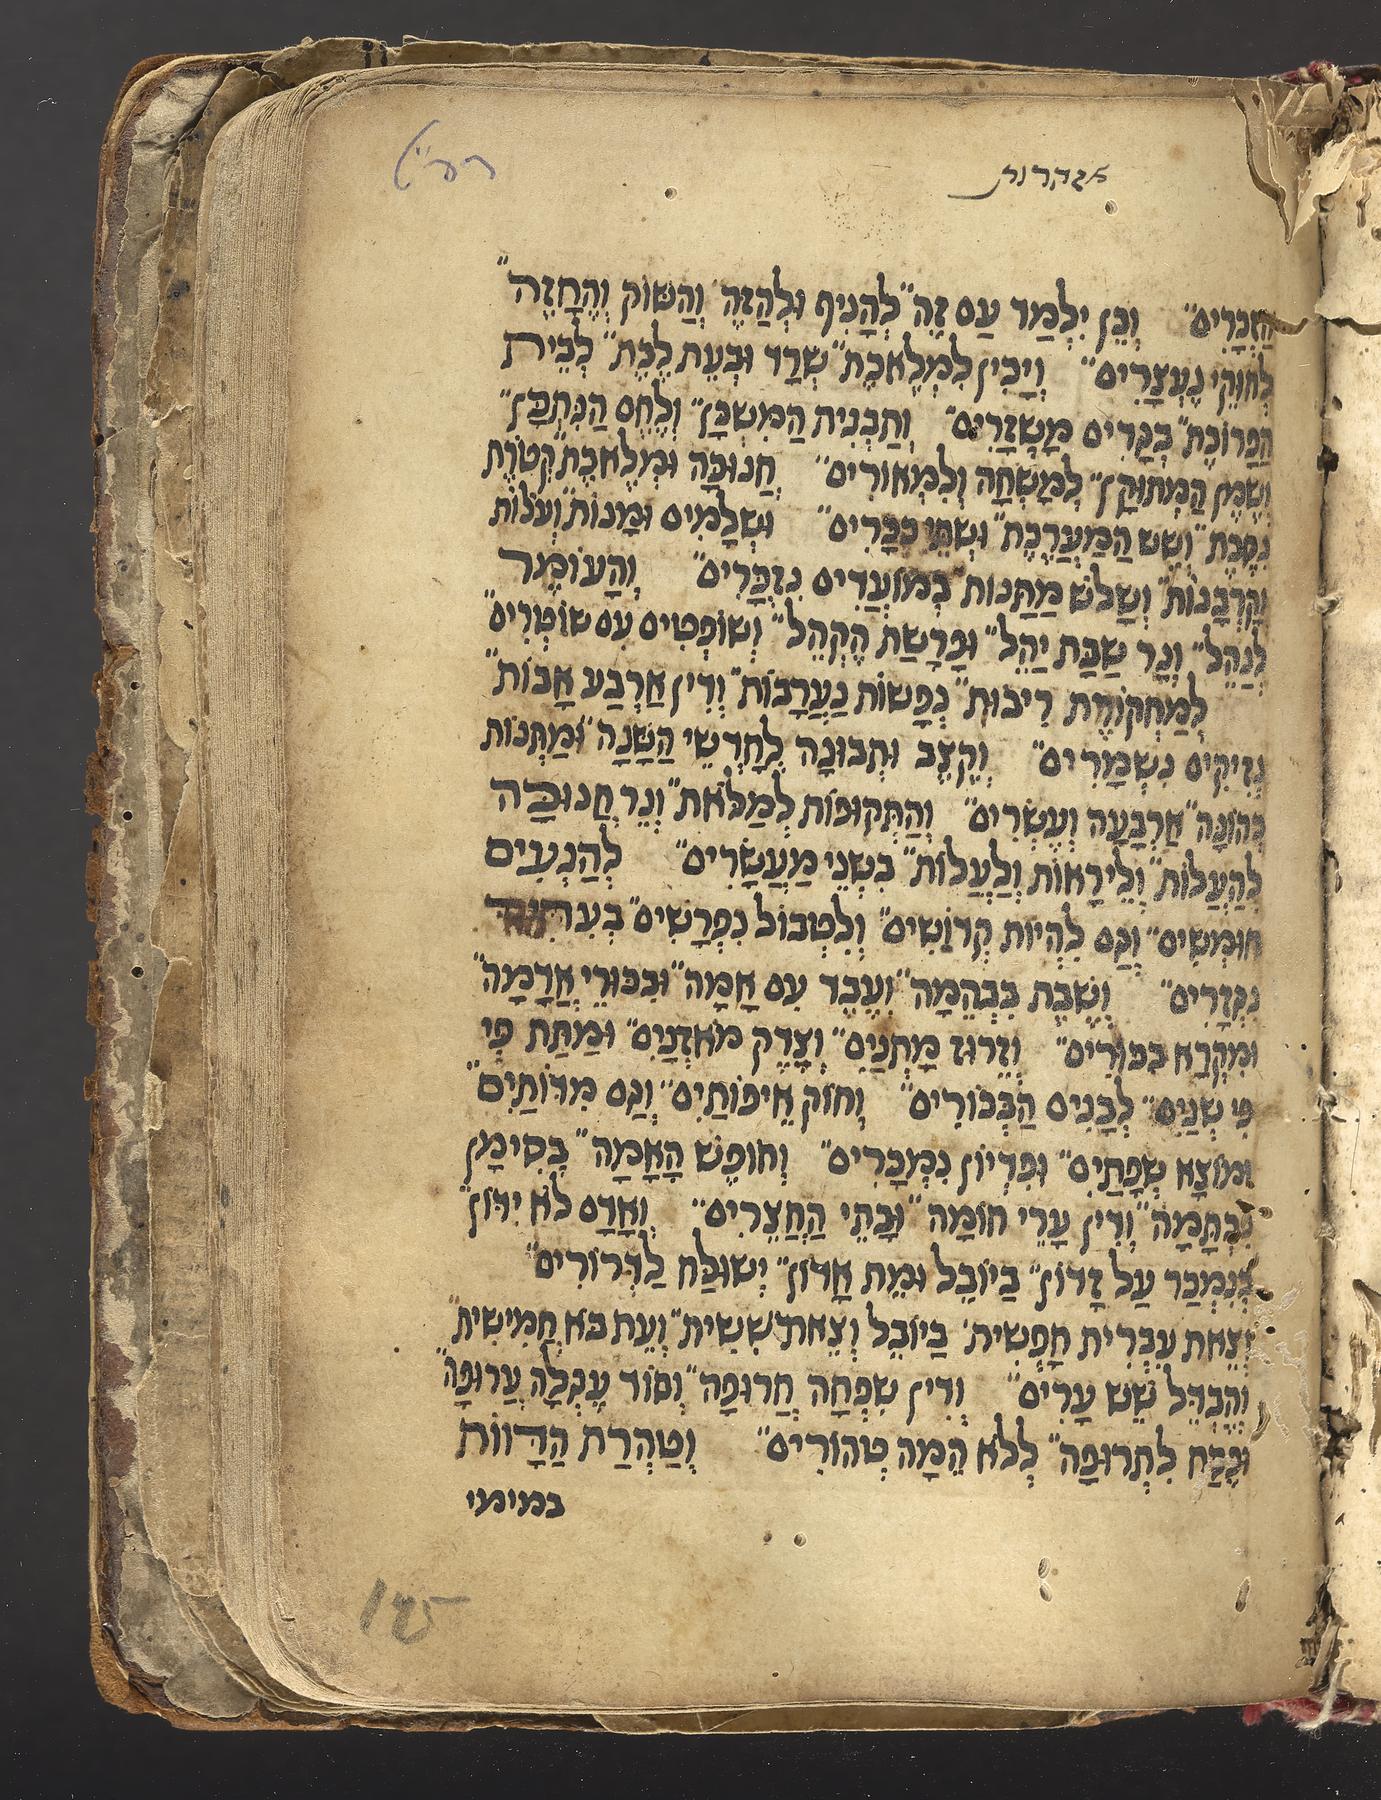 אזהרות
הַזְכָּרִים״ וְכֵן יִלְמַד עִם זֶה״ לְהָנִיף וּלְהַזֶּה״ וְהַשּׁוֹק וְהֶחָזֶה״
לְחוּקֵי נֶעְצָרִים״ וְיָבִין לִמְלֶאכֶת״ שְׂרָד וּבְעֵת לֶכֶת״ לְבֵית
הַפָּרוֹכֶת״ בְּגָדִים מָשְׁזָרִים״ וְתַבְנִית הַמִּשְׁכָּן״ וְלֶחֶם הַנִּתְכָּן״
וְשֶׁמֶן הַמְתוּקָּן״ לְמָשְׁחָה וְלִמְאוֹרִים״ חֲנוּכָּה וּמְלֶאכֶת קְטוֹרֶת
נִסֶּכֶת״ וְשֵׁשׁ הַמַּעֲרֶכֶת״ וּשְׁתֵּי כִכָּרִים״ וּשְׁלָמִים וּמָנוֹת״ וְעֹלוֹת
וְקָרְבָּנוֹת״ וְשָׁלֹשׁ מַתָּנוֹת בְּמוֹעֲדִים נִזְכָּרִים״ וְהָעוֹמֶר
לְנַהֵל״ וְנֵר שַׁבָּת יַהֵל״ וּפָרָשַׁת הַקְהֵל״ וְשׁוֹפְטִים עִם שׁוֹטְרִים״
לְמַחְקוֹרֶת רִיבוּת״ נְפָשׁוֹת נַעֲרָבוֹת״ וְדִין אַרְבַּע אָבוֹת״
נְזִיקִים נִשְׁמָרִים״ וְקֶצֶב וּתְבוּנָה לְחָדְשֵׁי הַשָּׁנָה״ וּמַתְּנוֹת
כְּהוּנָּה״ אַרְבָּעָה וְעֶשְׂרִים״ וְהַתְּקוּפוֹת לְמַלֹּאת״ וְנֵר חֲנוּכָּה
לְהַעֲלוֹת״ וְלֵירָאוֹת וְלַעֲלוֹת״ בִּשְׁנֵי מַעֲשָׂרִים״ לְהַנְעִים
חוּמְשִׁים״ וְגַם לִהְיוֹת קְדוֹשִׁים״ וְלִטְבּוֹל נִפְרָשִׁים״
נִגְזָרִים״ וְשֶׁבֶת בִּבְהֵמָה״ וְעֶבֶד עִם אָמָה״ וּבִכּוּרֵי אֲדָמָה״
וּמִקְרָא בִּכּוּרִים״ וְזֵרוּז מָתְנַיִם״ וְצֶדֶק מֹאזְנַיִם״ וּמַתַּת פִּי
פִּי שְׁנַיִם״ לְבָנִים הַבְּכוֹרִים״ וְחוֹק אֵיפוֹתַיִם״ וְגַם מִדּוֹתַיִם״
וּמוֹצָא שְׂפָתַיִם״ וּפִדְיוֹן נִמְכָּרִים״ וְחוֹפֶשׁ הָאָמָה״ בְּסִימָן
נִכְתָּמָה״ וְדִין עָרֵי חוֹמָה״ וּבָתֵּי הַחֲצֵרִים״ וְאָדָם לֹא יִדּוֹן
בְּנִמְכַּר עַל זָדוֹן״ בַּיּוֹבֵל וּמֵת אָדוֹן״ יְשׁוּלַּח לַדְּרוֹרִים״
וְצֵאת עִבְרִית חָפְשִׁית״ בַּיּוֹבֵל וְצֵאת שִׁשִּׁית״ וְעֵת בֹּא חֲמִישִׁית״
וְהֶבְדֵּל שֵׁשׁ עָרִים״ וְדִין שִׁפְחָה חֲרוּפָה״ וְסוֹד עֶגְלָה עֲרוּפָה״
וּפֶסַח לִתְרוּפָה״ לְלֹא הֵמָּה טְהוֹרִים״ וְטָהֳרַת הַדָּווֹת
במימי